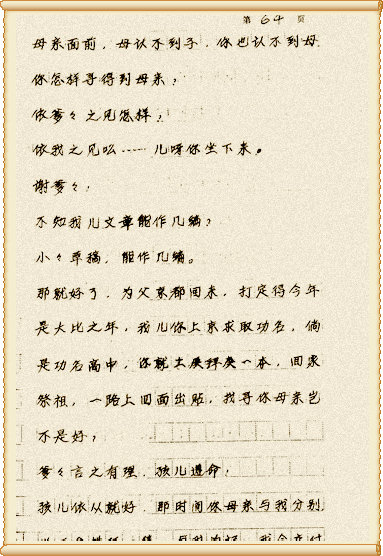 第 64 页
母亲面前，母认不到子，你也认不到母
你怎样寻得到母亲？
依爹々之见怎样？
依我之见么……儿呀你坐下来。
谢爹々！
不知我儿文章能作几编？
小々草稿，能作几编。
那就好了，为父京都回来，打定得今年
是大比之年，我儿你上京求取功名，倘
是功名高中，你就上庆拜庆一本，回家
祭祖，一路上四面出贴，找寻你母亲岂
不是好？
爹々言之有理，孩儿遵命！
孩儿依从就好，那时间你母亲与我分别